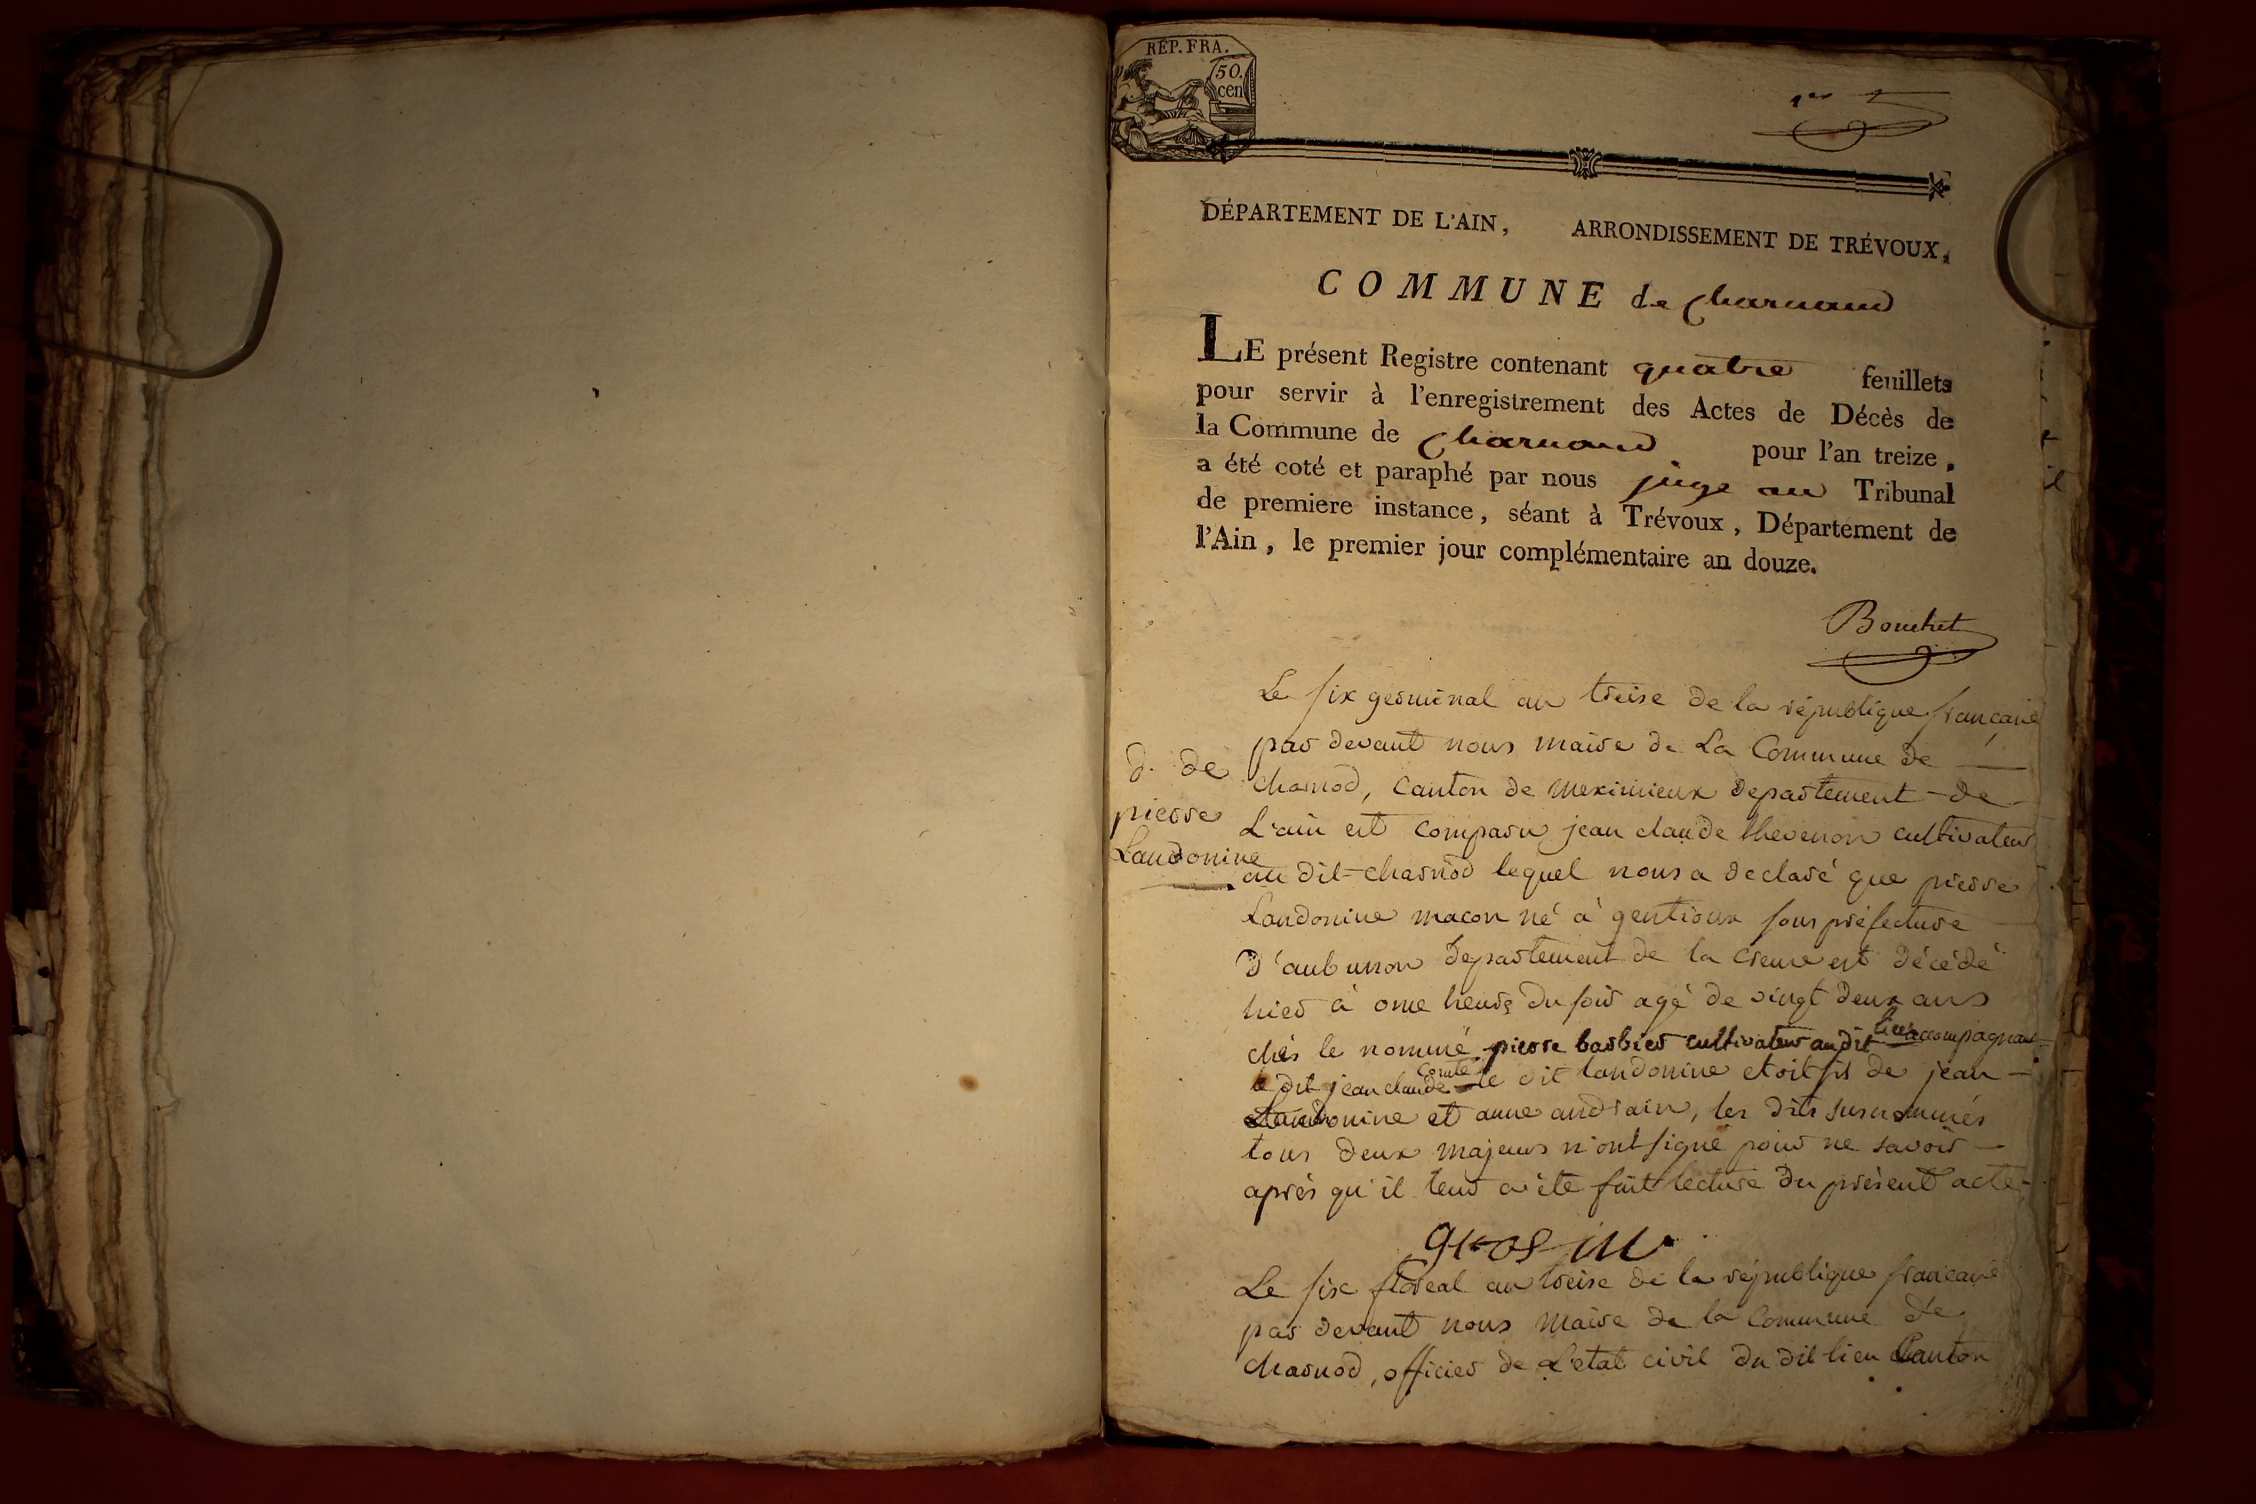 RÉP. FRA.
50.
cen
1er
DÉPARTEMENT DE L'AIN, ARRONDISSEMENT DE TRÉVOUX,
COMMUNE de Charnaud
LE présent Registre contenant quatre feuillets
pour servir à l'enregistrement des Actes de Décès de
la Commune de Charnaud pour l'an treize,
a été coté et paraphé par nous juge au Tribunal
de premiere instance, séant à Trévoux, Département de
l'Ain, le premier jour complémentaire an douze.
Bouchet
Le six germinal an treise de la république francaise
par devant nous maire de La Commune de
charnod, Canton de meximieux departement de
L'ain est comparu jean claude thevenon cultivateur
au dit charnod lequel nous a declaré que pierre
Landonine macon né à gentioux sous préfecture
d'aubusson departement de la creuse est décédé
hier à onze heure du soir agé de vingt deux ans
chés le nommé pierre barbier cultivateur au dit lieu accompagnant
le dit jean claude le dit landonine etoit fils de jean
Landonine et anne andrain, les dits susnommés
tous deux majeurs n'ont signé pour ne savoir
après qu'il leur a été fait lecture du présent acte
d. de
pierre
Landonine
grosjin
Le six floreal an treise de la république francaise
par devant nous maire de la commune de
charnod, officier de L'etat civil du dit lieu Canton